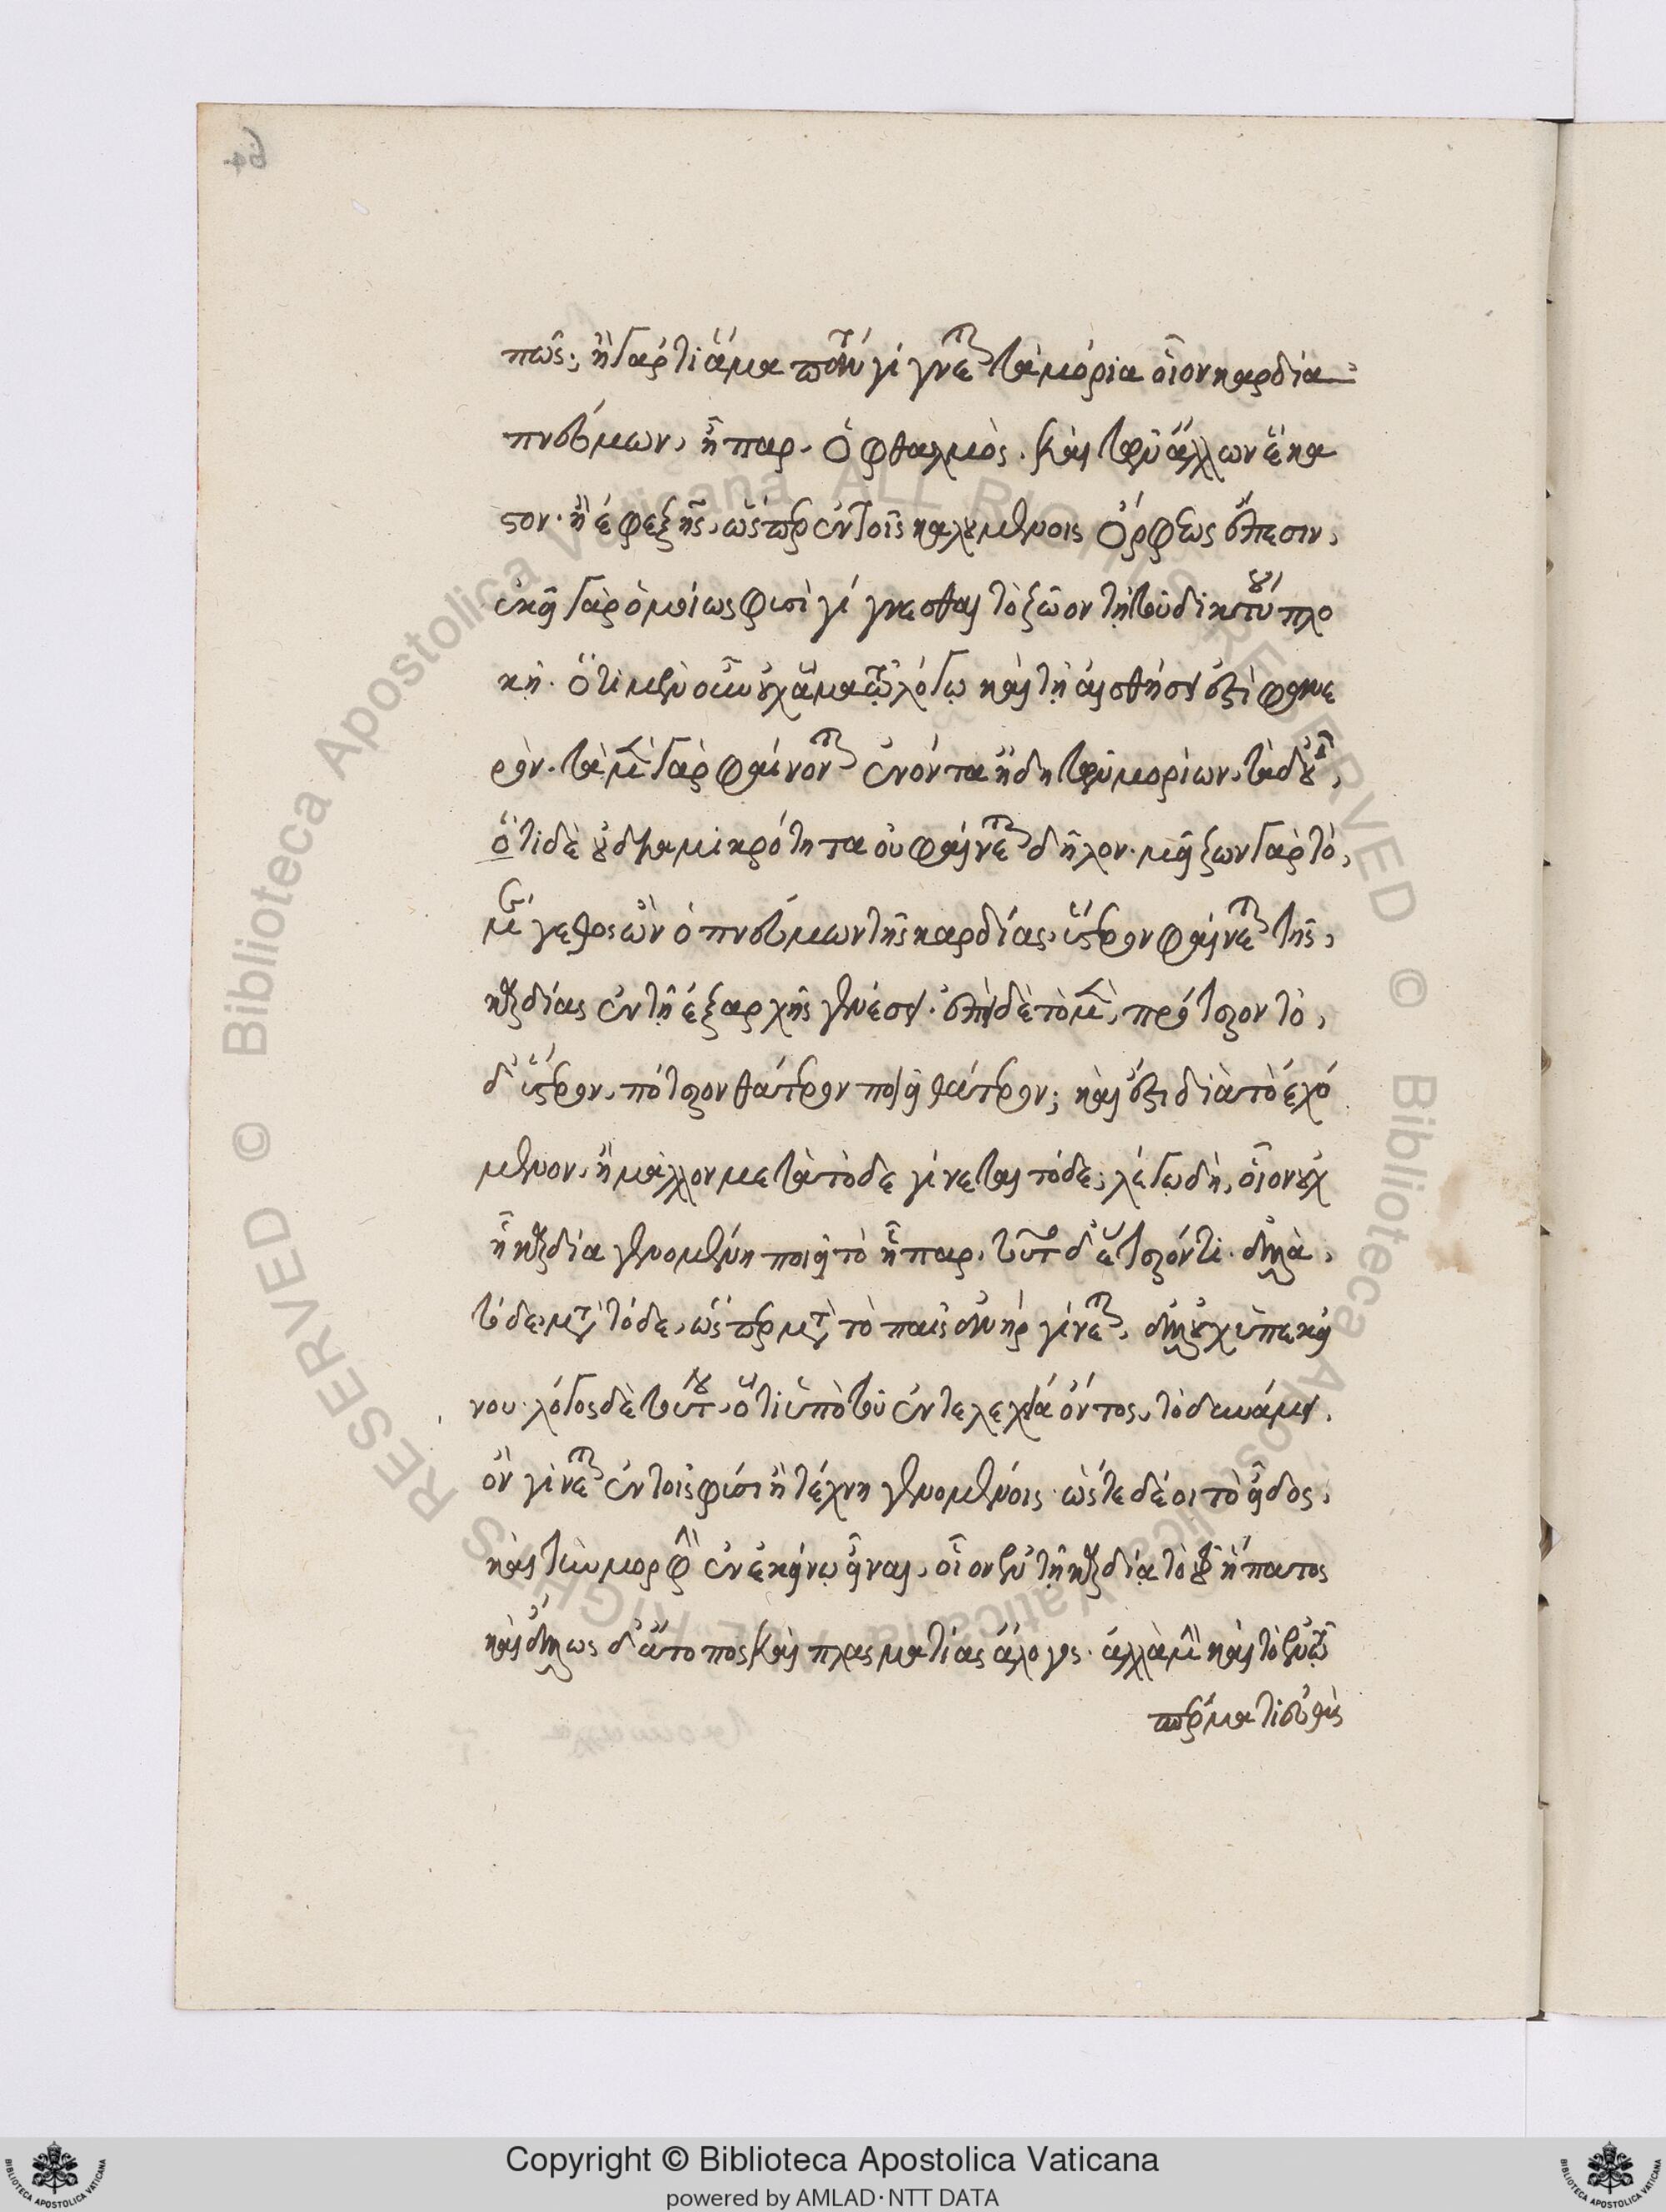 64
πῶς; ἢ γάρ τι ἅμα πάντα γίγνεται τὰ μόρια οἷον καρδία
πνεύμων, ἧπαρ, ὀφθαλμὸς. καὶ τῶν ἄλλων ἕκα
στον· ἢ ἐφεξῆς, ὥσπερ ἐν τοῖς καλουμένοις Ὀρφέως ἔπεσιν,
ἐκεῖ γὰρ ὁμοίως φησὶ γίγνεσθαι τὸ ζῶον τῇ τοῦ δικτύου πλο
κῇ. ὅτι μὲν οὖν οὐχ ἅμα τῷ λόγῳ καὶ τῇ αἰσθήσει ἐστὶ φανε
ρὸν. τὰ μὲν γὰρ φαίνονται ἐνόντα ἤδη τῶν μορίων, τὰ δ' οὔ,
ὅτι δὲ οὐ διὰ μικρότητα οὐ φαίνεται δῆλον. μείζων γὰρ τὸ,
μέγεθος ὢν ὁ πνεύμων τῆς καρδίας, ὕστερον φαίνεται τῆς,
καρδίας ἐν τῇ ἐξ αρχῆς γενέσει. ἐπεὶ δὲ τὸ μὲν, πρότερον τὸ,
δ' ὕστερον, πότερον θάτερον ποιεῖ θάτερον; καὶ ἔστι διὰ τὸ ἐχό
μενον, ἢ μᾶλλον μετὰ τὸδε γίνεται τόδε; λέγω δὴ, οἷον οὐχ
ἡ καρδία γενομένη ποιεῖ τὸ ἧπαρ. τοῦτο δ' ἕτερόν τι. ἀλλὰ,
τόδε μετὰ τόδε, ὥσπερ μετὰ τὸ παῖς ἀνὴρ γίνεται, ἀλλ' οὐχ ὑπ' ἐκεί
νου. λόγος δὲ τούτου, ὅτι ὑπὸ τοῦ ἐντελεχείᾳ ὄντος, τὸ δυνάμει.
ὂν γίνεται ἐν τοῖς φύσει ἢ τέχνῃ γενομένοις· ὥστε δέοι τὸ εἶδος,
καὶ τὴν μορφὴν ἐν ἐκείνῳ εἶναι, οἷον ἐν τῇ καρδίᾳ τὸ τοῦ ἥπατος
καὶ ἄλλως δ' ἄτοπος καὶ πλασματίας ὁ λόγος. ἀλλὰ μὴν καὶ τὸ ἐν τῷ
σπέρματι εὐθὺς
Copyright © Biblioteca Apostolica Vaticana
powered by AMLAD·NTT DATA